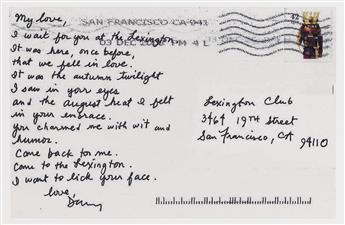 My love,
SAN FRANCISCO CA 941
I wait for you at the Lexington.
03 DEC PM 4 L
It was here, once before,
that we fell in love.
It was the autumn twilight
I saw in your eyes
and the August heat I felt
in your embrace.
you charmed me with wit and
humor.
Come back to me.
Come to the Lexington.
I want to lick your face.
love,
Lexington Club
3464 19TH Street
San Francisco, CA 94110